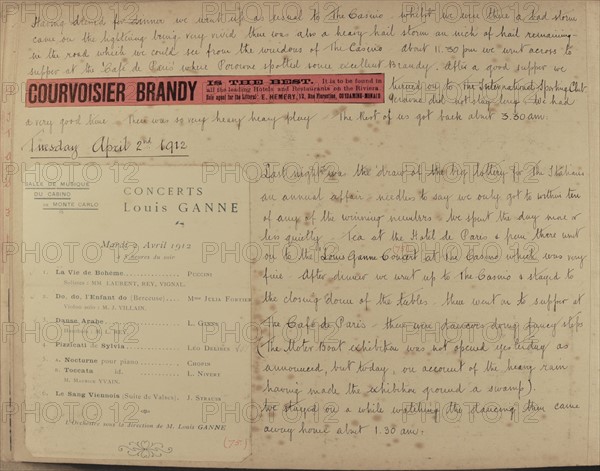 Having dined for dinner we went up as usual to the Casino whilst we were there a bad storm
came on the lightning being very vivid there was also a heavy hail storm an inch of hail remaining
in the road which we could see from the windows of the Casino about 11.30 pm we went across to
supper at the Café de Paris where Porcione spotted some excellent Brandy. After a good supper we
COURVOISIER BRANDY
IS THE BEST. It is to be found in
all the leading Hotels and Restaurants on the Riviera
Sole agent for the Littoral: E. HEMERY, 13, Rue Florentine, MONACO
turned on to the International Sporting Club
did not stay long we had
a very good time there was some very heavy play The Rest of us got back about 3.30 am.
Tuesday April 2nd 1912
SALLE DE MUSIQUE
DU CASINO
DE MONTE CARLO
CONCERTS
Louis GANNE
Mardi 2 Avril 1912
à heures du soir
1. La Vie de Bohème PUCCINI
Solistes: MM. LAURENT, REY, VIGNAL.
2. Do, do, l'Enfant do (Berceuse) Mme JULIA FORTIER
Violon solo: M. J. VILLAIN.
3. Danse Arabe L. GANNE
Hautbois: M. L. REY
4. Pizzicati de Sylvia LÉO DELIBES
5. a. Nocturne pour piano CHOPIN
b. Toccata id. L. NIVERT
M. MAURICE YVAIN.
6. Le Sang Viennois (Suite de Valses) J. STRAUSS
L'Orchestre sous la direction de M. Louis GANNE
Last night was the draw of the big lottery for the Italians
an annual affair needless to say we only got to within ten
of any of the winning numbers. We spent the day more or
less quietly. Tea at the Hotel de Paris & from there went
on to the Louis Ganne Concert at the Casino which was very
fine. After dinner we went up to the Casino & stayed to
the closing down of the tables. then went on to supper at
The Café de Paris there were dancers doing fancy steps
(The Motor Boat exhibition was not opened yesterday as
announced but today, on account of the heavy rain
having made the exhibition ground a swamp).
We stayed on a while watching the dancing then came
away home about 1.30 am.